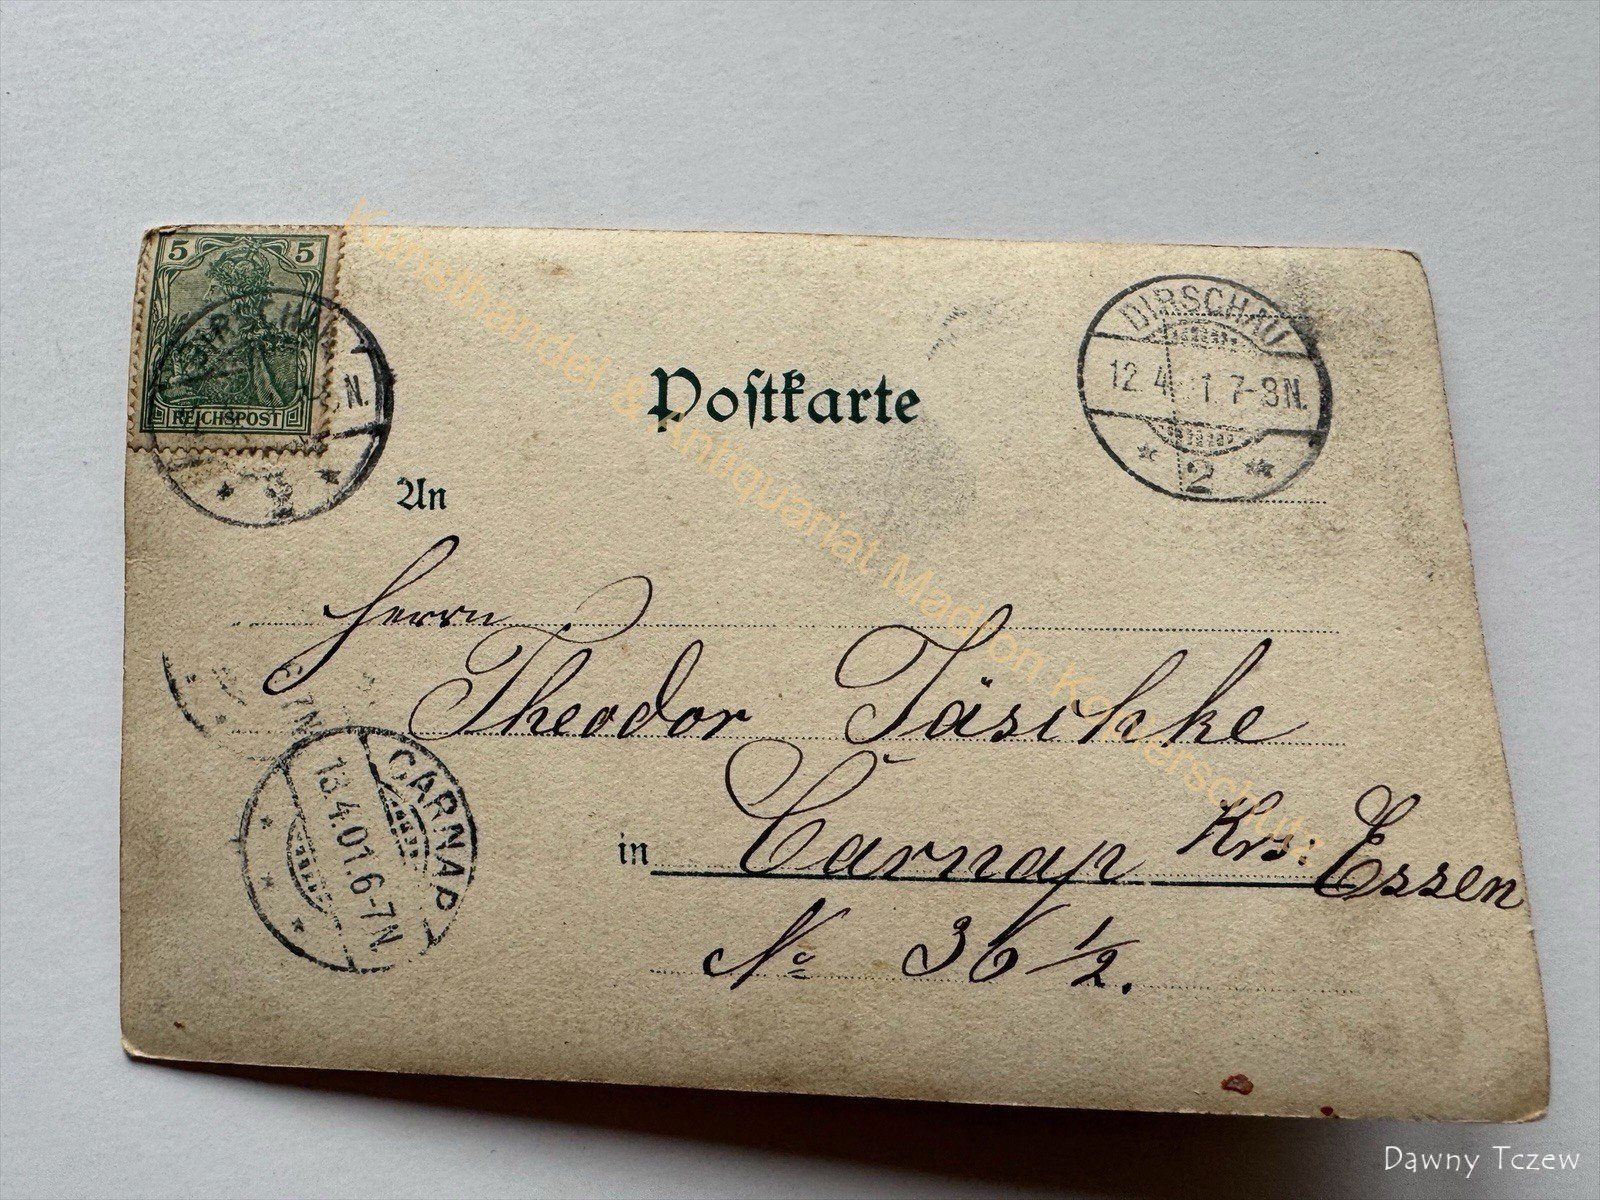 5 5
REICHSPOST
DIRSCHAU
12 4 1 7-8N.
* 2 **
Postkarte
An
Herrn
Theodor Jäschke
in Carnap Krs: Essen
No 36 1/2.
CARNAP
13.4.01.6-7N
6-7N
Kunsthandel & Antiquariat Madron Kollerschutz
Dawny Tczew